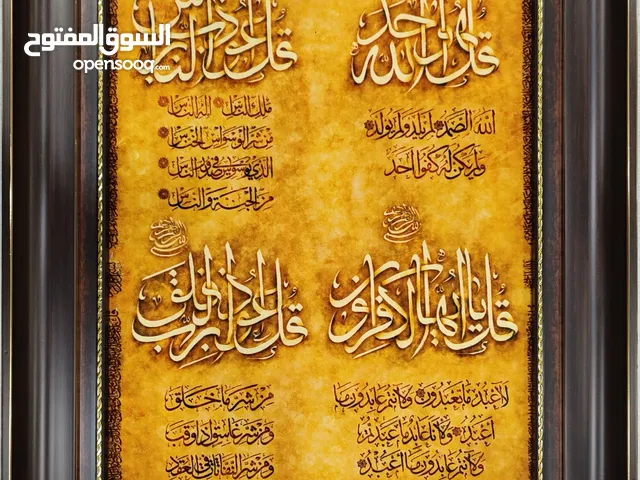 السوق المفتوح
opensooq.com
قل هو الله أحد
الله الصمد لم يلد ولم يولد
ولم يكن له كفوا أحد
قل أعوذ برب الناس
ملك الناس إله الناس
من شر الوسواس الخناس
الذي يوسوس في صدور الناس
من الجنة والناس
قل يا أيها الكافرون
لا أعبد ما تعبدون ولا أنتم عابدون ما
أعبد ولا أنا عابد ما عبدتم
ولا أنتم عابدون ما أعبد
قل أعوذ برب الفلق
من شر ما خلق
ومن شر غاسق إذا وقب
ومن شر النفاثات في العقد